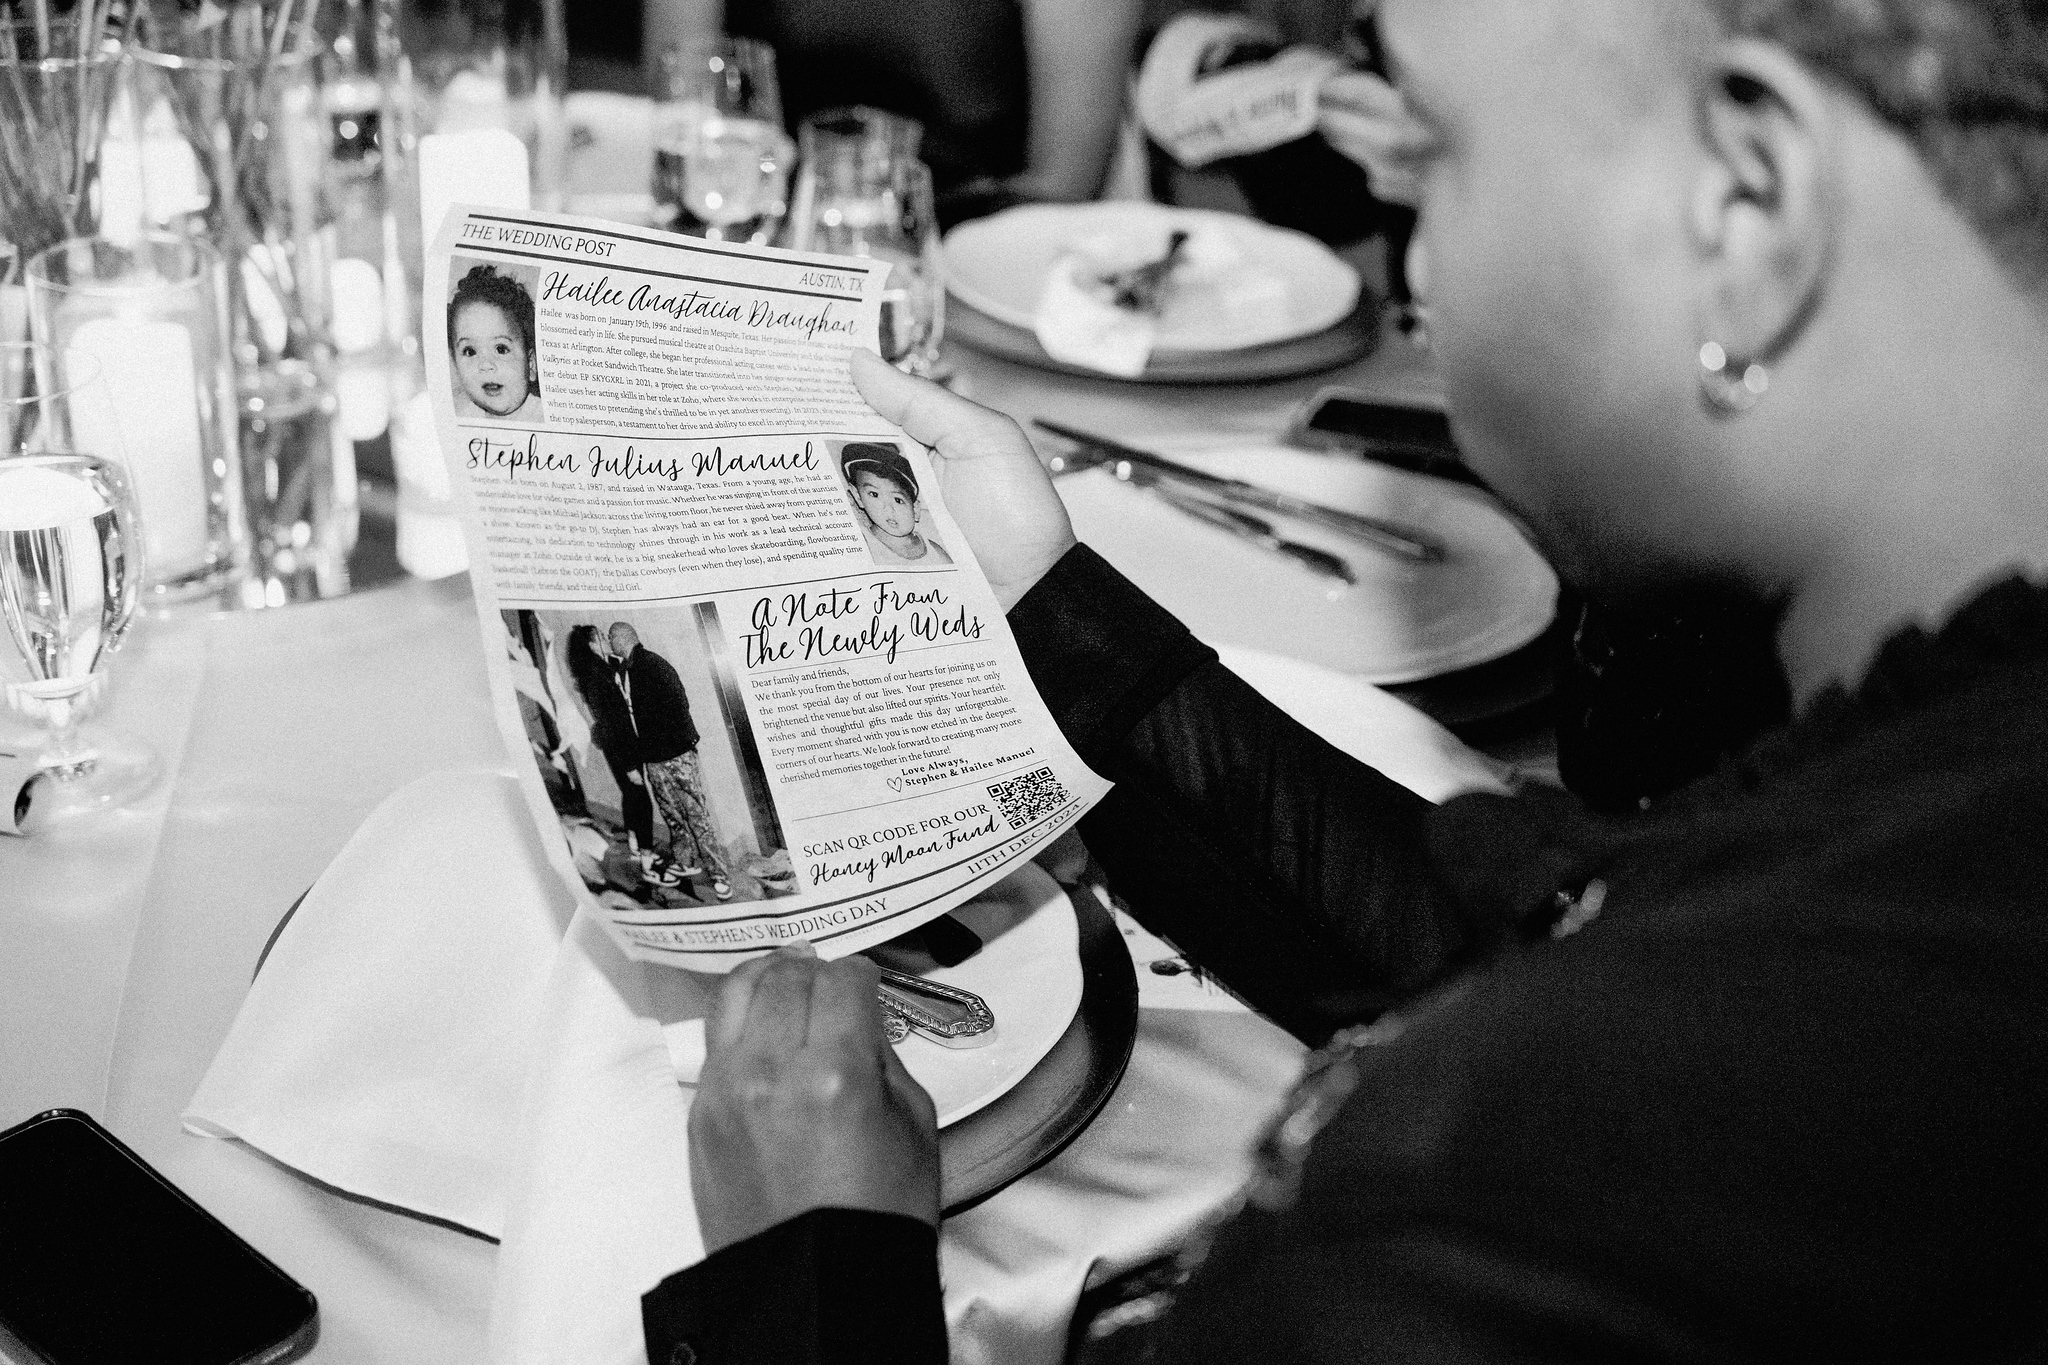 THE WEDDING POST
AUSTIN, TX
Hailee Anastacia Draughon
Hailee was born on January 19th, 1996 and raised in Mesquite, Texas. Her passion for music and
blossomed early in life. She pursued musical theatre at Ouachita Baptist University and the
Texas at Arlington. After college, she began her professional acting career with a lead role in
Valkyries at Pocket Sandwich Theatre. She later transitioned into her
her debut EP SKYGXRL in 2021, a project she co-produced with Stephen,
Hailee uses her acting skills in her role at Zoho, where she works in enterprise software sales
when it comes to pretending she's thrilled to be in yet another meeting). In 2023, she was
the top salesperson, a testament to her drive and ability to excel in anything she pursues.
Stephen Julius Manuel
Stephen was born on August 2, 1987, and raised in Watauga, Texas. From a young age, he had an
undeniable love for video games and a passion for music. Whether he was singing in front of the aunties
or moonwalking like Michael Jackson across the living room floor, he never shied away from putting on
a show. Known as the go-to DJ, Stephen has always had an ear for a good beat. When he's not
entertaining, his dedication to technology shines through in his work as a lead technical account
manager at Zoho. Outside of work, he is a big sneakerhead who loves skateboarding, flowboarding,
basketball (Lebron the GOAT), the Dallas Cowboys (even when they lose), and spending quality time
with family, friends, and their dog, Lil Girl.
A Note From
The Newly Weds
Dear family and friends,
We thank you from the bottom of our hearts for joining us on
the most special day of our lives. Your presence not only
brightened the venue but also lifted our spirits. Your heartfelt
wishes and thoughtful gifts made this day unforgettable.
Every moment shared with you is now etched in the deepest
corners of our hearts. We look forward to creating many more
cherished memories together in the future!
Love Always,
Stephen & Hailee Manuel
SCAN QR CODE FOR OUR
Honey Moon Fund
HAILEE & STEPHEN'S WEDDING DAY
11TH DEC 2024